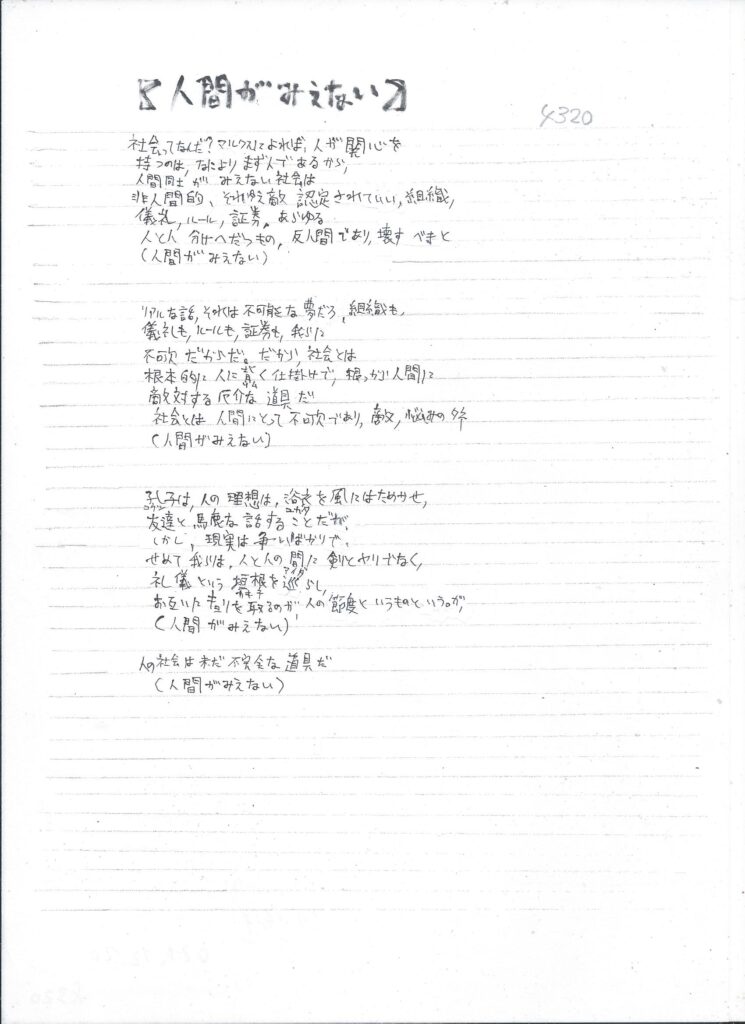 【人間がみえない】
4320
社会ってなんだ?マルクスによれば、人が関心を
持つのは、なにより まず人であるから、
人間同士が みえない社会は
非人間的、それゆえ敵 認定されていい、組織、
儀礼、ルール、証券、あらゆる
人と人 分けへだつもの、反人間であり、壊す べきと
(人間がみえない)
リアルな話、それは不可能な夢だろ、組織も、
儀礼も、ルールも、証券も、我らに
不可欠 だからだ。だから、社会とは
根本的に人に背く仕掛けで、根っから人間に
ソム
敵対する厄介な 道具だ
社会とは 人間にとって不可欠であり、敵、悩みのタネ
(人間がみえない)
孔子は、人の 理想は、浴衣を風にはためかせ、
コウシ ユカタ
友達と 馬鹿な 話する ことだが、
しかし、現実は争いばかりで、
せめて 我らは、人と人の間に 剣とヤリでなく、
アイダ
礼儀という 垣根を巡らし、
カキネ
お互いに 距離を取るのが人の節度というものという。が、
(人間がみえない)
人の社会は未だ 不完全な 道具だ
(人間がみえない)